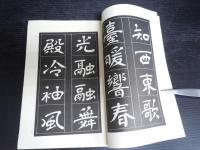 知西東歌
臺暖響春
光融融舞
殿冷袖風